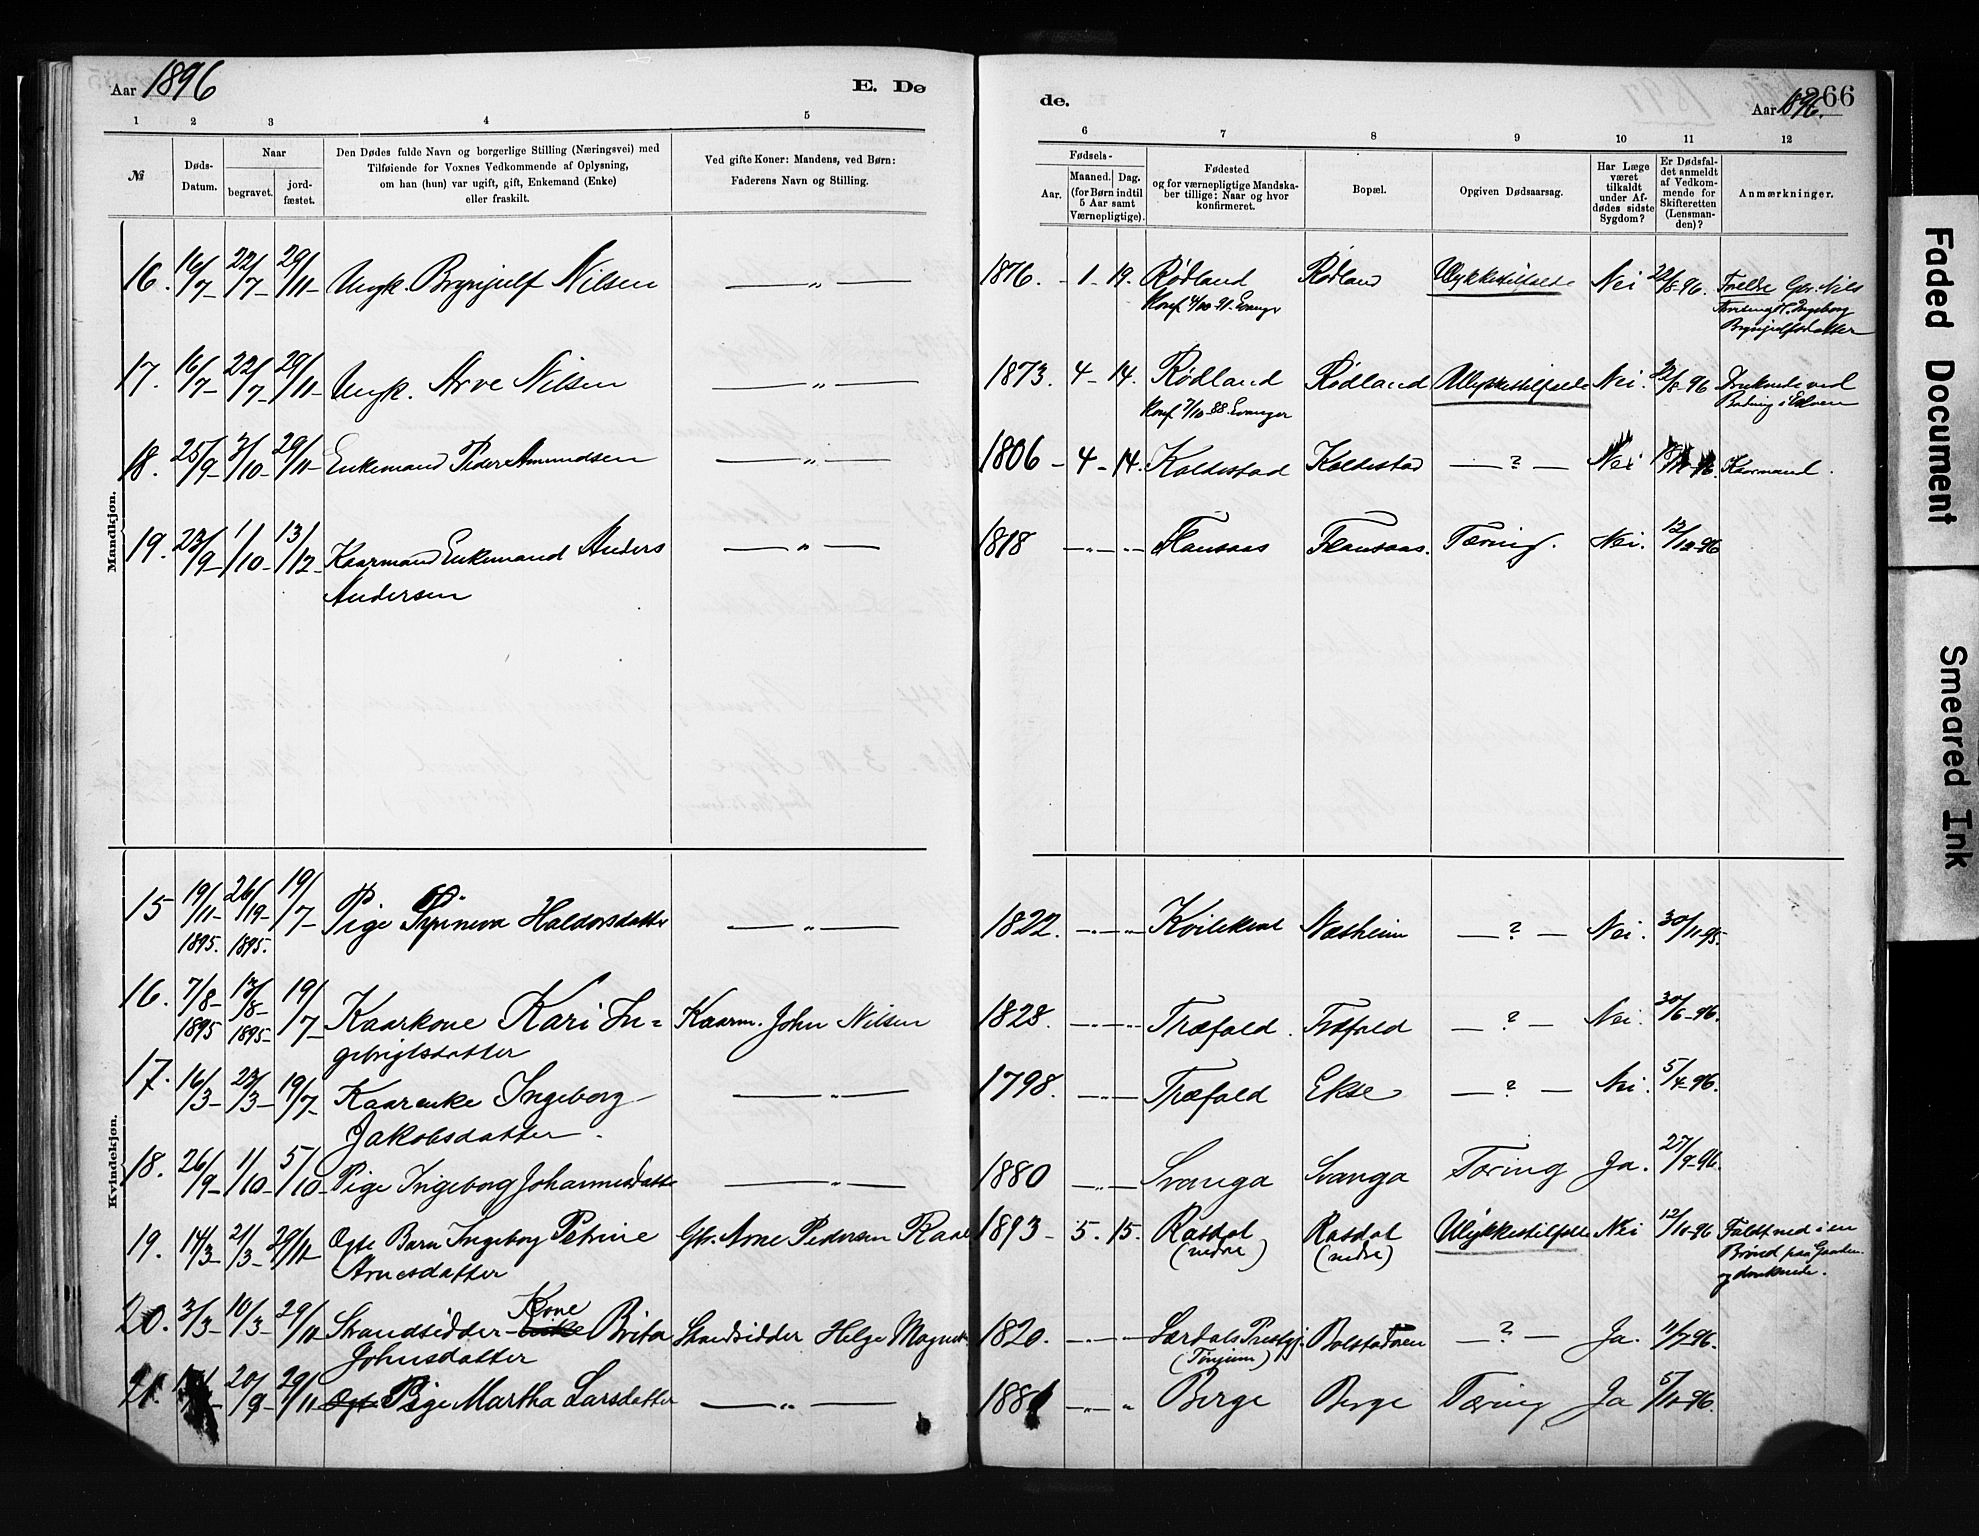 Aar 1896
E. Dø
de.
266
Aar 1896.
1 2 3 4 5
6 7 8 9 10 11 12
№
Døds-
Datum.
Naar
begravet.
jord-
fæstet.
Den Dødes fulde Navn og borgerlige Stilling (Næringsvei) med
Tilføiende for Voxnes Vedkommende af Oplysning,
om han (hun) var ugift, gift, Enkemand (Enke)
eller fraskilt.
Ved gifte Koner: Mandens, ved Børn:
Faderens Navn og Stilling.
Fødsels-
Aar.
Maaned. Dag.
(for Børn indtil
5 Aar samt
Værnepligtige).
Fødested
og for værnepligtige Mandska-
ber tillige: Naar og hvor
konfirmeret.
Bopæl.
Opgiven Dødsaarsag.
Har Læge
været
tilkaldt
under Af-
dødes sidste
Sygdom?
Er Dødsfal-
det anmeldt
af Vedkom-
mende for
Skifteretten
(Lensman-
den)?
Anmærkninger.
Mandkjøn.
16. 16/7- 22/7- 29/11- Ungk. Brynjulf Nilsen — " — 1876. - 1 - 19. Rødland Rødland Ulykkestilfælde Nei 22/8-96. Forældre Gbr. Nils
Konf. 4/10-91. Evanger
Ingeborg
Brynjulfsdatter
17. 16/7- 22/7- 29/11- Ungk. Arve Nilsen — " — 1873. 4 - 14. Rødland Rødland Ulykkestilfælde Nei. 22/8-96 Druknede ved
Konf 7/10-88. Evanger
Badning i Elven
18. 25/9- 3/10- 29/11- Enkemand Peder Amundsen — " — 1806 - 4 - 14. Koldestad Koldestad — ? — Nei Kaarmand.
19. 23/9- 1/10- 13/12- Kaarmand Enkemand Anders — " — 1818 — " — " — Flansaas Flansaas. Tæring. Nei. 12/12-96
Andersen
Kvindekjøn.
15 19/11- 26/19- 19/7- Pige Haldorsdatter — " — 1822. — " — " — Næsheim — ? — Nei. 30/11-95.
1895. 1895.
16. 7/8- 13/8- 19/7- Kaarkone Kari In= Kaarm. John Nilsen 1828. — " — " — Træfald. Træfald — ? — Nei. 30/6-96.
1895 1895-
gebrigtsdatter
17. 16/3- 23/3- 19/7- Kaarenke Ingeborg — " — 1798. — " — Træfald Ekse — ? — Nei. 5/4-96.
Jakobsdatter.
18. 26/9- 1/10- 5/10- Pige Ingeborg Johannesdatt — " — 1880 — " — Svanga Svanga Tæring Ja. 27/9-96.
19. 14/3- 21/3- 29/11- Ogte Barn Ingeborg Petrine Gbr. Arne Pedersen Rasd 1893 - 5. 15. Rasdal Rasdal Ulykkestilfælde Nei 12/10-96 Faldt ned i en
Arnesdatter (nedre) (nedre) Brønd paa Gaarden
og druknede.
20. 3/3- 10/3- 29/11- Strandsidder- Kone Enke Brita Strandsidder Helge Magnes 1820. — " — Lærdals Prestgj. Bolstadøren — ? — Ja. 11/7-96.
Johnsdatter (Tønjum)
21. 20/9- 29/11- Ogt Pige Martha Larsdatter — " — 1881 — " — " Berge Berge Tæring Ja 5/10-96.
Faded Document
Smeared Ink